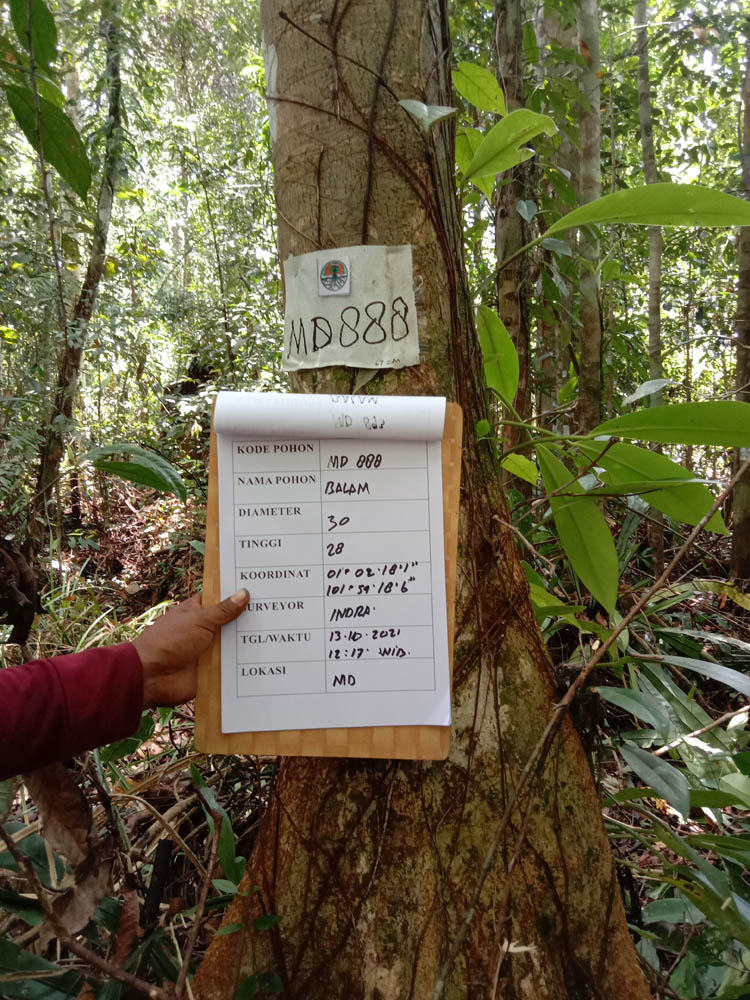 MD888
KODE POHON MD 888
NAMA POHON BALAM
DIAMETER 30
TINGGI 28
KOORDINAT 01° 02' 18'1"
101° 59' 18'6"
SURVEYOR INDRA
TGL/WAKTU 13.10.2021
12:17 WIB.
LOKASI MD